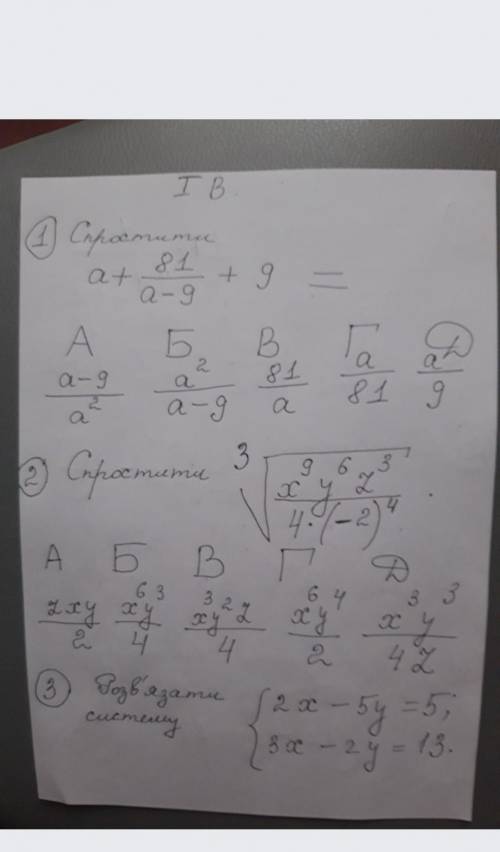 I В.
1 Спростити
a + 81/(a-9) + 9 =
А Б В Г Д
(a-9)/a² a²/(a-9) 81/a a/81 a²/9
2 Спростити ³√(x⁹y⁶z³/(4·(-2)⁴)).
А Б В Г Д
zxy/2 x⁶y³/4 x³y²z/4 x⁶y⁴/2 x³y³/4z
3 Розв'язати систему { 2x - 5y = 5;
3x - 2y = 13.